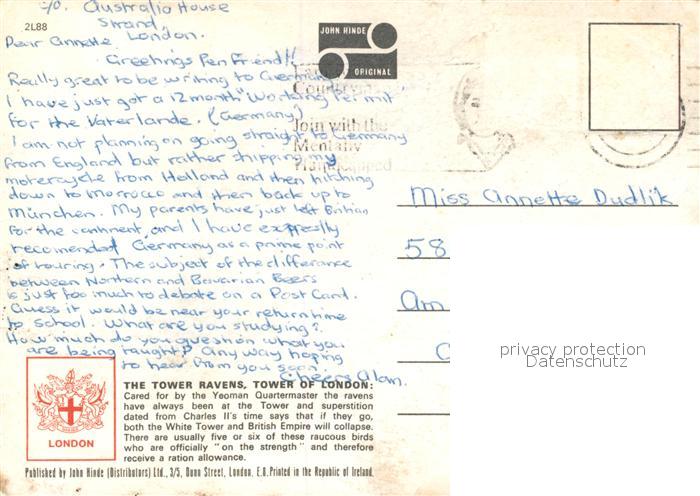 c/o. Australia House
Strand,
London.
2L88
Dear Annette
Greetings Pen Friend!!
Really great to be writing to Germany
I have just got a 12 month "Working Permit
for the Vaterlande. (Germany)
I am not planning on going straight to Germany
from England but rather shipping my
motercycle from Holland and then hitching
down to Morrocco and then back up to
München. My parents have just left Britian
for the continent, and I have expressly
recomended Germany as a prime point
of touring. The subject of the difference
between Northern and Bavarian Beers
is just too much to debate on a Post Card.
Guess it would be near your return time
to school. What are you studying?
How much do you question what you
are being taught? Any way hoping
to hear from you soon.
Cheers Alan.
JOHN HINDE
ORIGINAL
Join with the
Mentally
Handicapped
Miss Annette Dudlik
58
Am
privacy protection
Datenschutz
LONDON
THE TOWER RAVENS, TOWER OF LONDON:
Cared for by the Yeoman Quartermaster the ravens
have always been at the Tower and superstition
dated from Charles II's time says that if they go,
both the White Tower and British Empire will collapse.
There are usually five or six of these raucous birds
who are officially "on the strength" and therefore
receive a ration allowance.
Published by John Hinde (Distributors) Ltd., 3/5, Dunn Street, London, E.8. Printed in the Republic of Ireland.